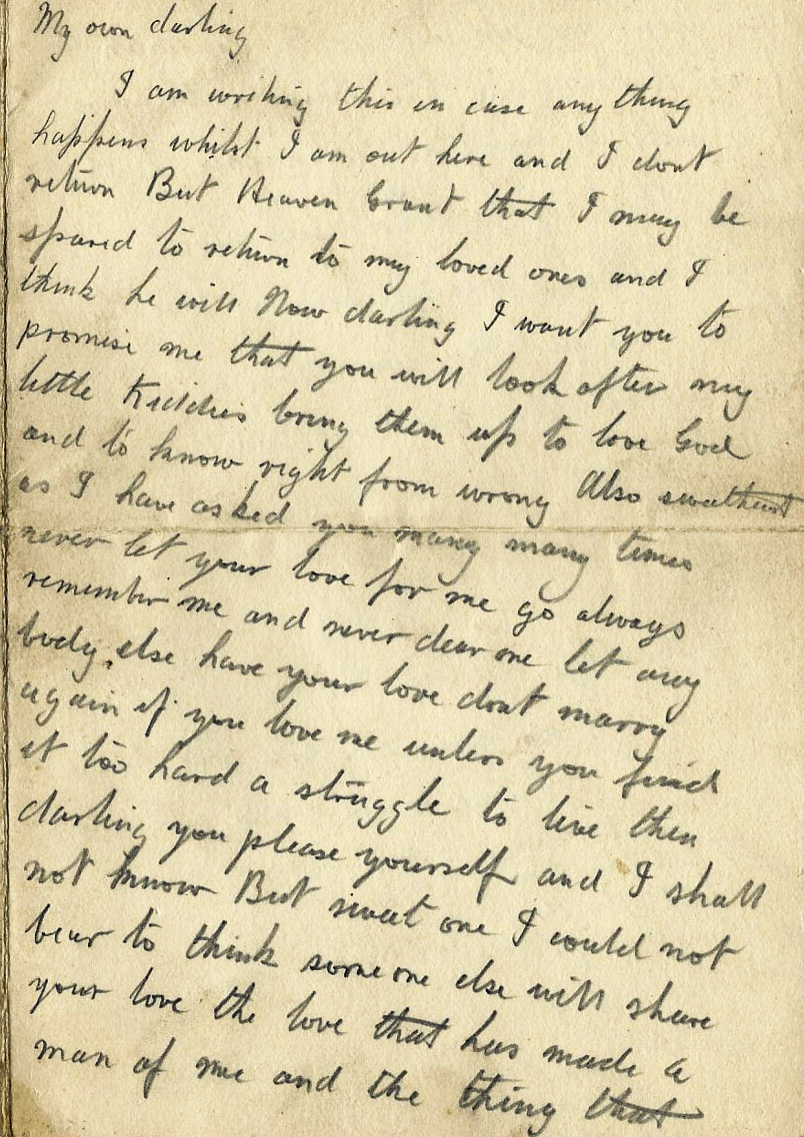 My own darling
I am writing this in case any thing
happens whilst I am out here and I dont
return But Heaven Grant that I may be
spared to return to my loved ones and I
think he will Now darling I want you to
promise me that you will look after my
little Kiddies bring them up to love God
and to know right from wrong Also sweetheart
as I have asked you many many times
never let your love for me go always
remember me and never dear one let any
body else have your love dont marry
again if you love me unless you find
it too hard a struggle to live then
darling you please yourself and I shall
not know But sweet one I could not
bear to think someone else will share
your love the love that has made a
man of me and the thing that